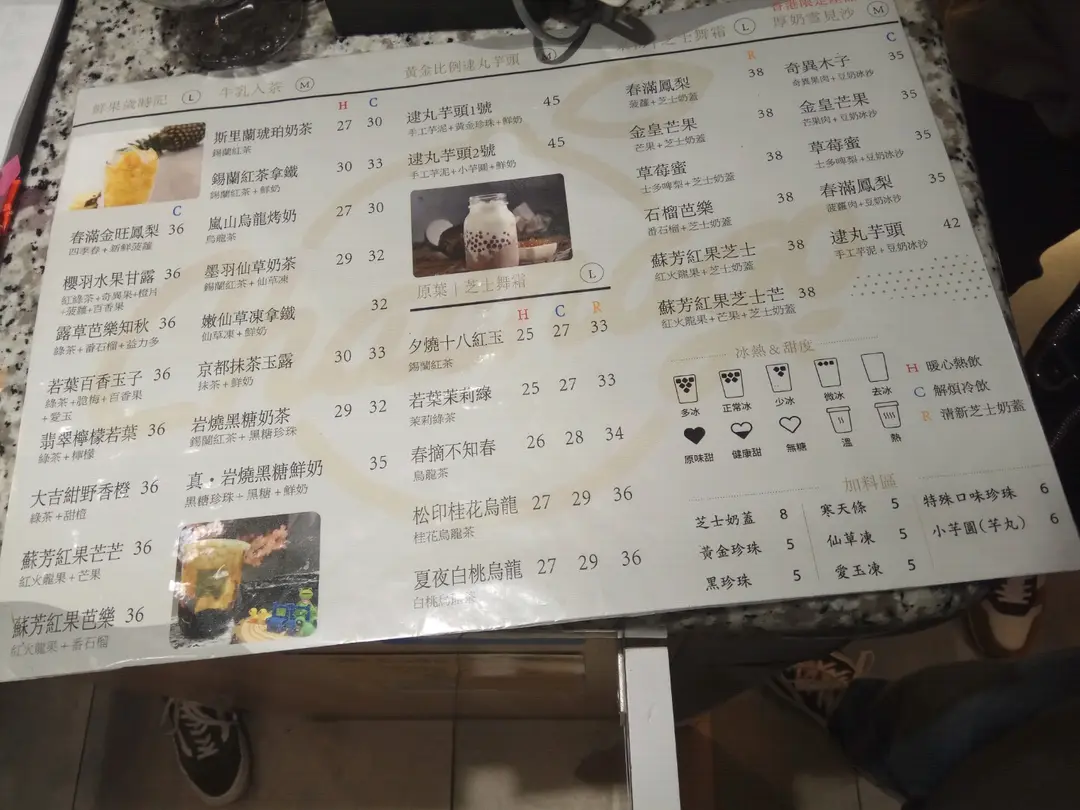 鮮果歲時記 L
C
春滿金旺鳳梨 36
四季春+新鮮菠蘿
櫻羽水果甘露 36
紅綠茶+奇異果+橙片
+菠蘿+百香果
露草芭樂知秋 36
綠茶+番石榴+益力多
若葉百香玉子 36
綠茶+脆梅+百香果
+愛玉
翡翠檸檬若葉 36
綠茶+檸檬
大吉紺野香橙 36
綠茶+甜橙
蘇芳紅果芒芒 36
紅火龍果+芒果
蘇芳紅果芭樂 36
紅火龍果+番石榴
牛乳入茶 M
H C
斯里蘭琥珀奶茶 27 30
錫蘭紅茶
錫蘭紅茶拿鐵 30 33
錫蘭紅茶+鮮奶
嵐山烏龍烤奶 27 30
烏龍茶
墨羽仙草奶茶 29 32
錫蘭紅茶+仙草凍
嫩仙草凍拿鐵 32
仙草凍+鮮奶
京都抹茶玉露 30 33
抹茶+鮮奶
岩燒黑糖奶茶 29 32
錫蘭紅茶+黑糖珍珠
真・岩燒黑糖鮮奶 35
黑糖珍珠+黑糖+鮮奶
黃金比例逮丸芋頭 M
逮丸芋頭1號 45
手工芋泥+黃金珍珠+鮮奶
逮丸芋頭2號 45
手工芋泥+小芋圓+鮮奶
原葉|芝士舞霜 L
H C R
夕燒十八紅玉 25 27 33
錫蘭紅茶
若葉茉莉綠 25 27 33
茉莉綠茶
春摘不知春 26 28 34
烏龍茶
松印桂花烏龍 27 29 36
桂花烏龍茶
夏夜白桃烏龍 27 29 36
白桃烏龍茶
芝士舞霜 L
R
春滿鳳梨 38
菠蘿+芝士奶蓋
金皇芒果 38
芒果+芝士奶蓋
草莓蜜 38
士多啤梨+芝士奶蓋
石榴芭樂 38
番石榴+芝士奶蓋
蘇芳紅果芝士 38
紅火龍果+芝士奶蓋
蘇芳紅果芝士芒 38
紅火龍果+芒果+芝士奶蓋
厚奶雪見沙 M
C
奇異木子 35
奇異果肉+豆奶冰沙
金皇芒果 35
芒果肉+豆奶冰沙
草莓蜜 35
士多啤梨+豆奶冰沙
春滿鳳梨 35
菠蘿肉+豆奶冰沙
逮丸芋頭 42
手工芋泥+豆奶冰沙
冰熱&甜度
多冰 正常冰 少冰 微冰 去冰
原味甜 健康甜 無糖 溫 熱
H 暖心熱飲
C 解煩冷飲
R 清新芝士奶蓋
加料區
芝士奶蓋 8
黃金珍珠 5
黑珍珠 5
寒天條 5
仙草凍 5
愛玉凍 5
特殊口味珍珠 6
小芋圓(芋丸) 6